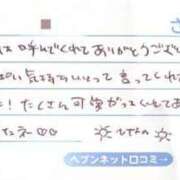 さ
は 呼んでくれて ありがとうござい
ぱい 気持ちいいって 言ってくれた
た! たくさん 可愛がっていしてあ
たネ♡♡
→ヘブンネット口コミへ